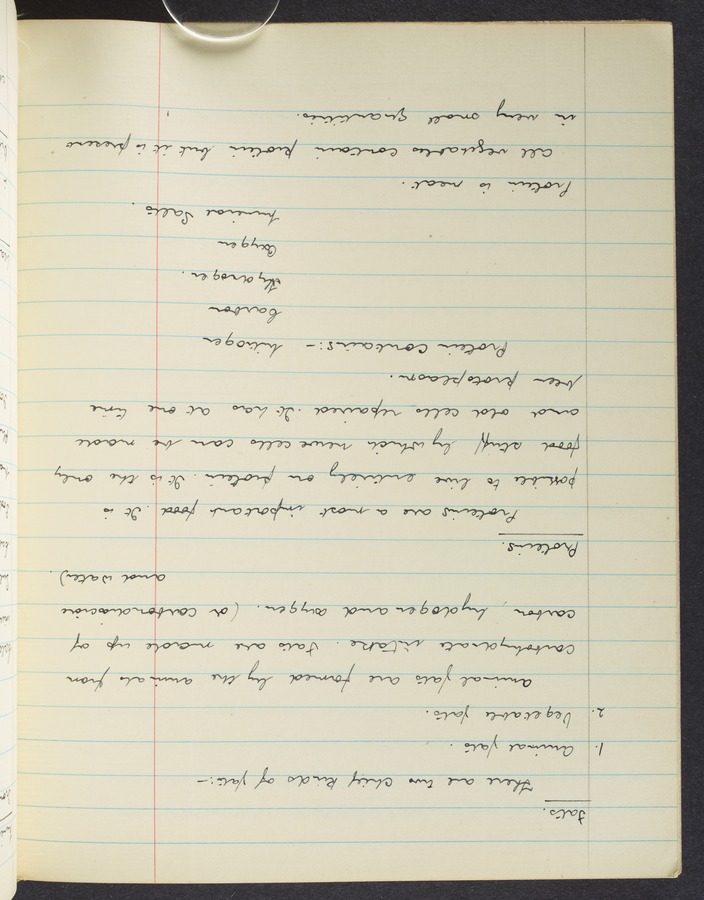 Fats.
There are two chief kinds of fats:-
1. Animal fats.
2. Vegetable fats.
Animal fats are formed by the animals from
carbohydrate intake. Fats are made up of
carbon, hydogen and oxygen. (or carbondioxide
and water)
Proteins.
Proteins are a most important food. It is
possible to live entirely on protein. It is the only
food stuff by which new cells can be made
and old cells repaired. It has at one time
been protoplasm.
Protein Contains:- Nitrogen
Carbon
Hydrogen.
Oxygen
Mineral Salts.
Protein is meat.
All vegetables contain protein but it is present
in very small quantities.